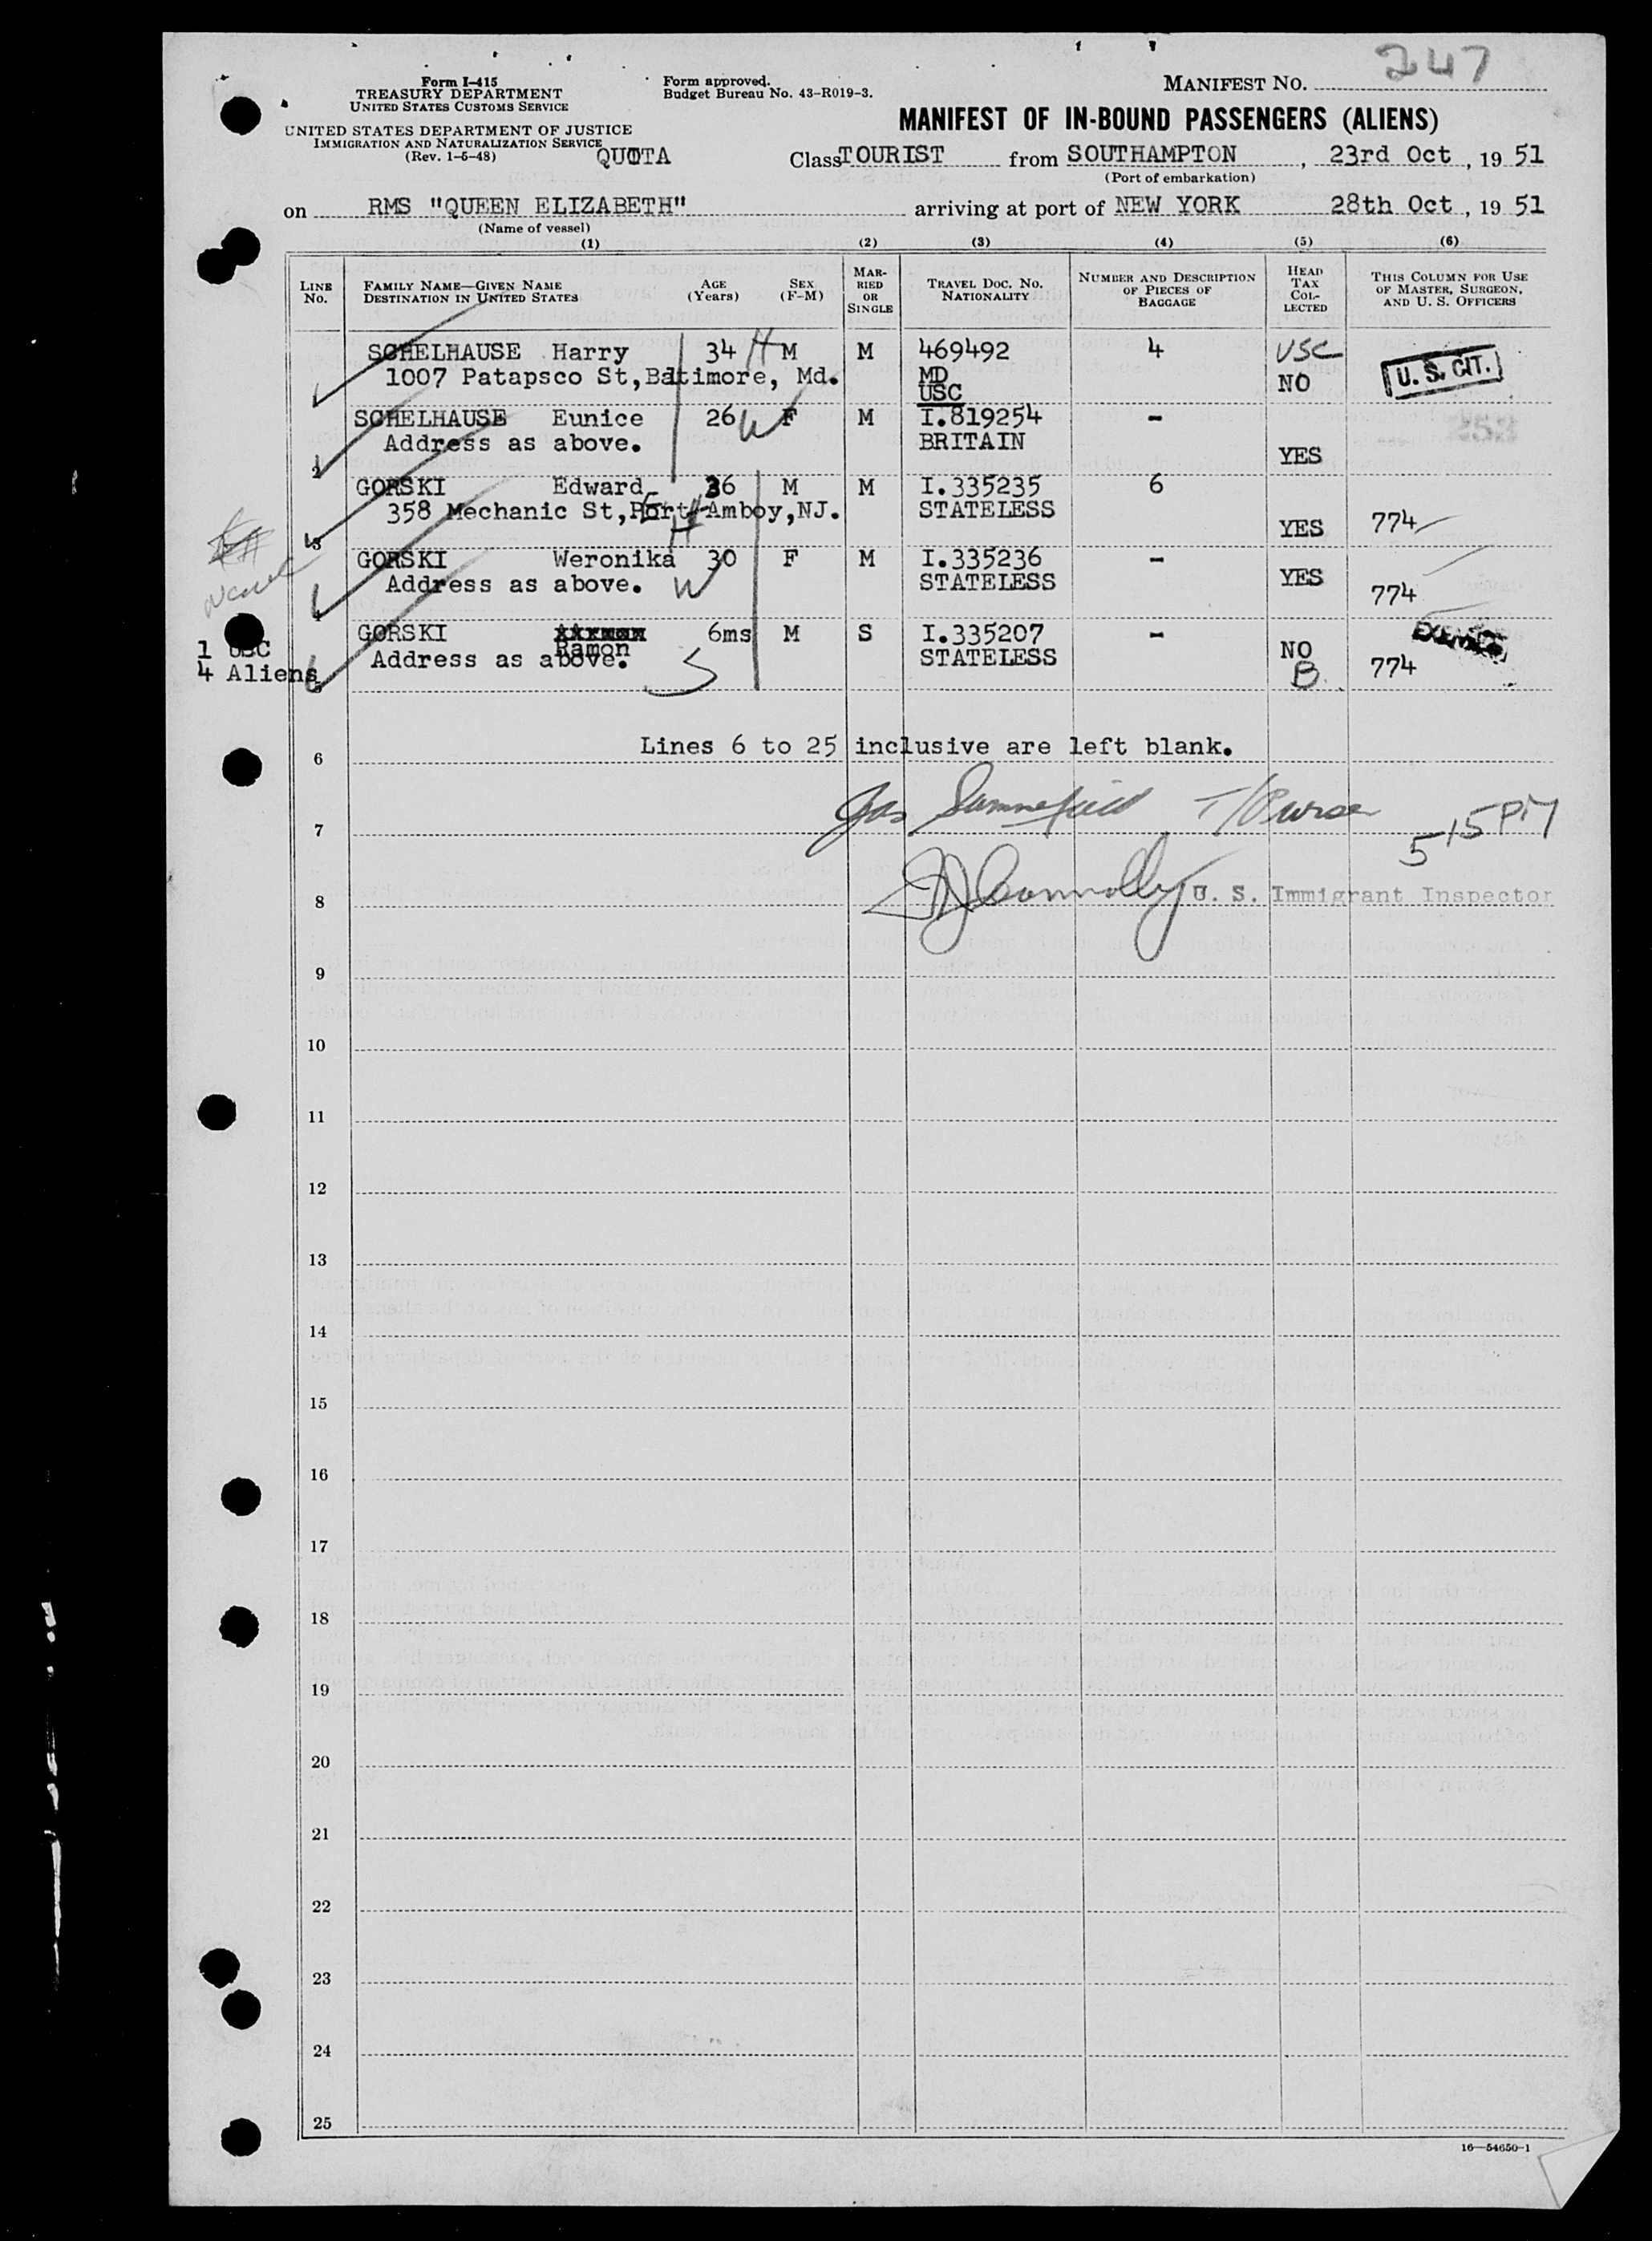 247
Form I-415
TREASURY DEPARTMENT
UNITED STATES CUSTOMS SERVICE
Form approved.
Budget Bureau No. 43-R019-3.
MANIFEST NO.
UNITED STATES DEPARTMENT OF JUSTICE
IMMIGRATION AND NATURALIZATION SERVICE
(Rev. 1-5-48)
MANIFEST OF IN-BOUND PASSENGERS (ALIENS)
QUOTA Class TOURIST from SOUTHAMPTON, 23rd Oct, 19 51
(Port of embarkation)
on RMS "QUEEN ELIZABETH" arriving at port of NEW YORK 28th Oct, 19 51
(Name of vessel)
(1) (2) (3) (4) (5) (6)
LINE NO. FAMILY NAME—GIVEN NAME DESTINATION IN UNITED STATES AGE (Years) SEX (F-M) MARRIED OR SINGLE TRAVEL DOC. NO. NATIONALITY NUMBER AND DESCRIPTION OF PIECES OF BAGGAGE HEAD TAX COLLECTED THIS COLUMN FOR USE OF MASTER, SURGEON, AND U. S. OFFICERS
SCHELHAUSE Harry 34 H M M 469492 4 USC
1007 Patapsco St, Baltimore, Md. MD NO U. S. CIT.
USC
SCHELHAUSE Eunice 26 W F M I.819254 - 253
Address as above. BRITAIN YES
2
GORSKI Edward 36 M M I.335235 6
358 Mechanic St, Amboy, NJ. STATELESS YES 774
3 H
GORSKI Weronika 30 F M I.335236 -
Address as above. W STATELESS YES 774
4
GORSKI Ramon 6ms M S I.335207 -
Address as above. S STATELESS NO 774
B
1 USC
4 Aliens
5
Lines 6 to 25 inclusive are left blank.
6
Jas T/Purser
7
5 15 PM
Connolly U. S. Immigrant Inspector
8
9
10
11
12
13
14
15
16
17
18
19
20
21
22
23
24
25
16—54650-1